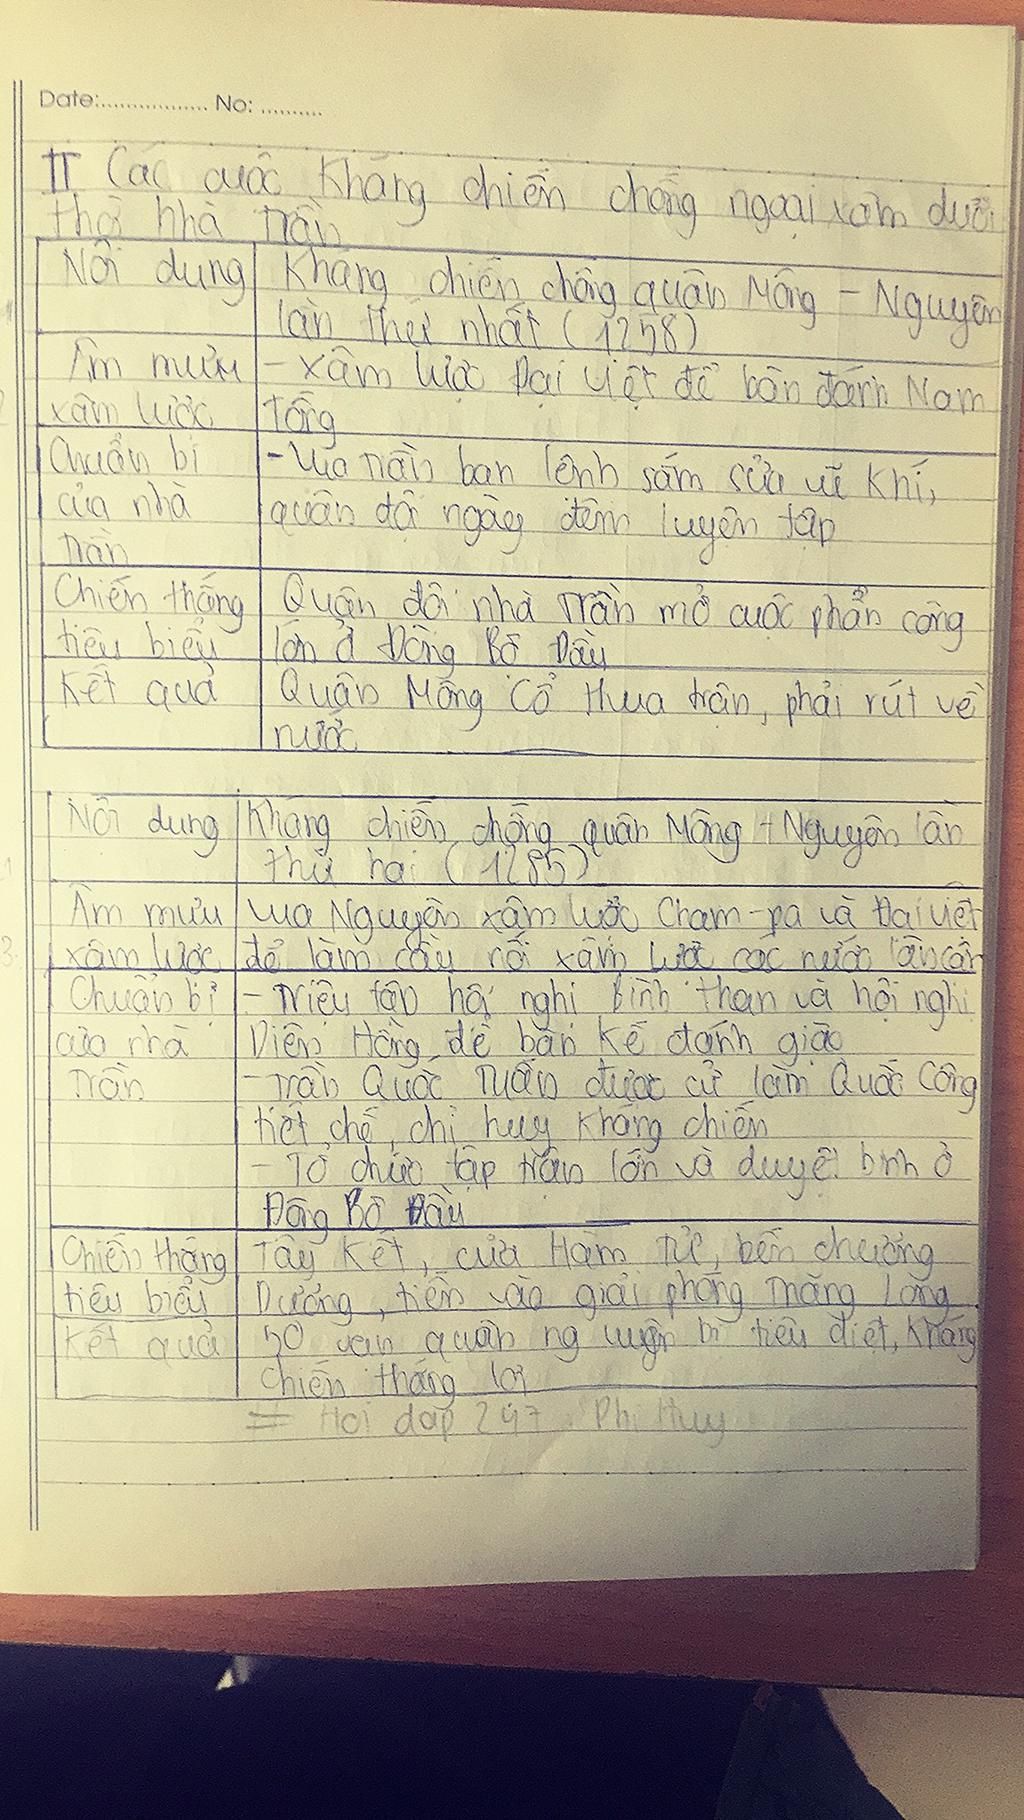 Date:.................. No: ...........
II Các cuộc kháng chiến chống ngoại xâm dưới
thời nhà Trần
Nội dung
Kháng chiến chống quân Mông - Nguyên
lần thứ nhất (1258)
Âm mưu
xâm lược
- Xâm lược Đại Việt để bàn đánh Nam
Tống
Chuẩn bị
của nhà
Trần
- Vua Trần ban lệnh sắm sửa vũ khí,
quân đội ngày đêm luyện tập
Chiến thắng
tiêu biểu
Quân đội nhà Trần mở cuộc phản công
lớn ở Đông Bộ Đầu
Kết quả
Quân Mông Cổ thua trận, phải rút về
nước
Nội dung
Kháng chiến chống quân Mông - Nguyên lần
thứ hai (1285)
Âm mưu
xâm lược
Vua Nguyên xâm lược Cham-pa và Đại Việt
để làm cầu nối xâm lược các nước lân cận
Chuẩn bị
của nhà
Trần
- Triệu tập hội nghị Bình Than và hội nghị
Diên Hồng để bàn kế đánh giặc
- Trần Quốc Tuấn được cử làm Quốc Công
tiết chế, chỉ huy kháng chiến
- Tổ chức tập trận lớn và duyệt binh ở
Đông Bộ Đầu
Chiến thắng
tiêu biểu
Tây Kết, cửa Hàm Tử, bến chương
Dương, tiến vào giải phóng Thăng Long
Kết quả
50 vạn quân nguyên bị tiêu diệt, kháng
chiến thắng lợi
= Hoi dap 247 Phi Huy